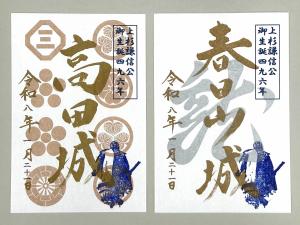 上杉謙信公
御生誕四九六年
春日山城
令和八年一月二十一日
上杉謙信公
御生誕四九六年
高田城
令和八年一月二十一日